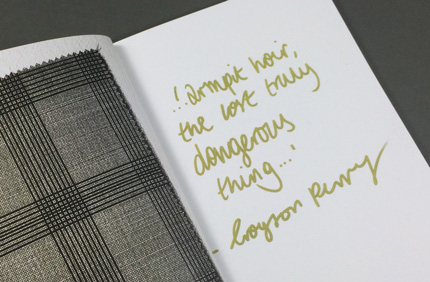 '...armpit hair,
the last truly
dangerous
thing...'
- Grayson Perry